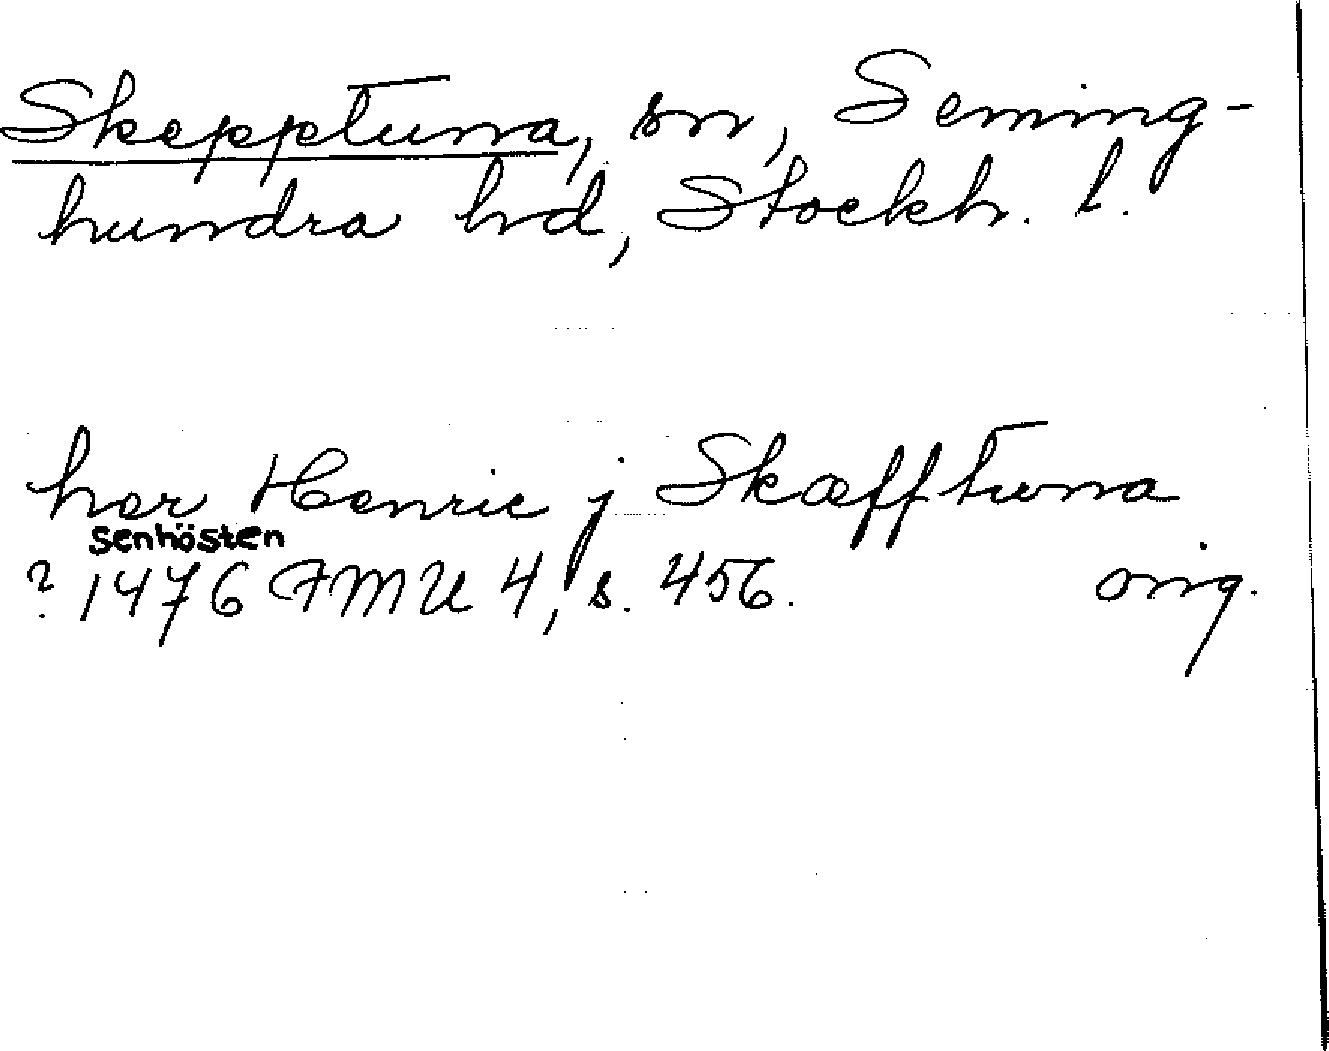 Skepptuna, sn, Seming-
hundra hd, Stockh. l.
har Henric j Skæfftuna
senhösten
? 1476 FMU 4, s. 456. orig.